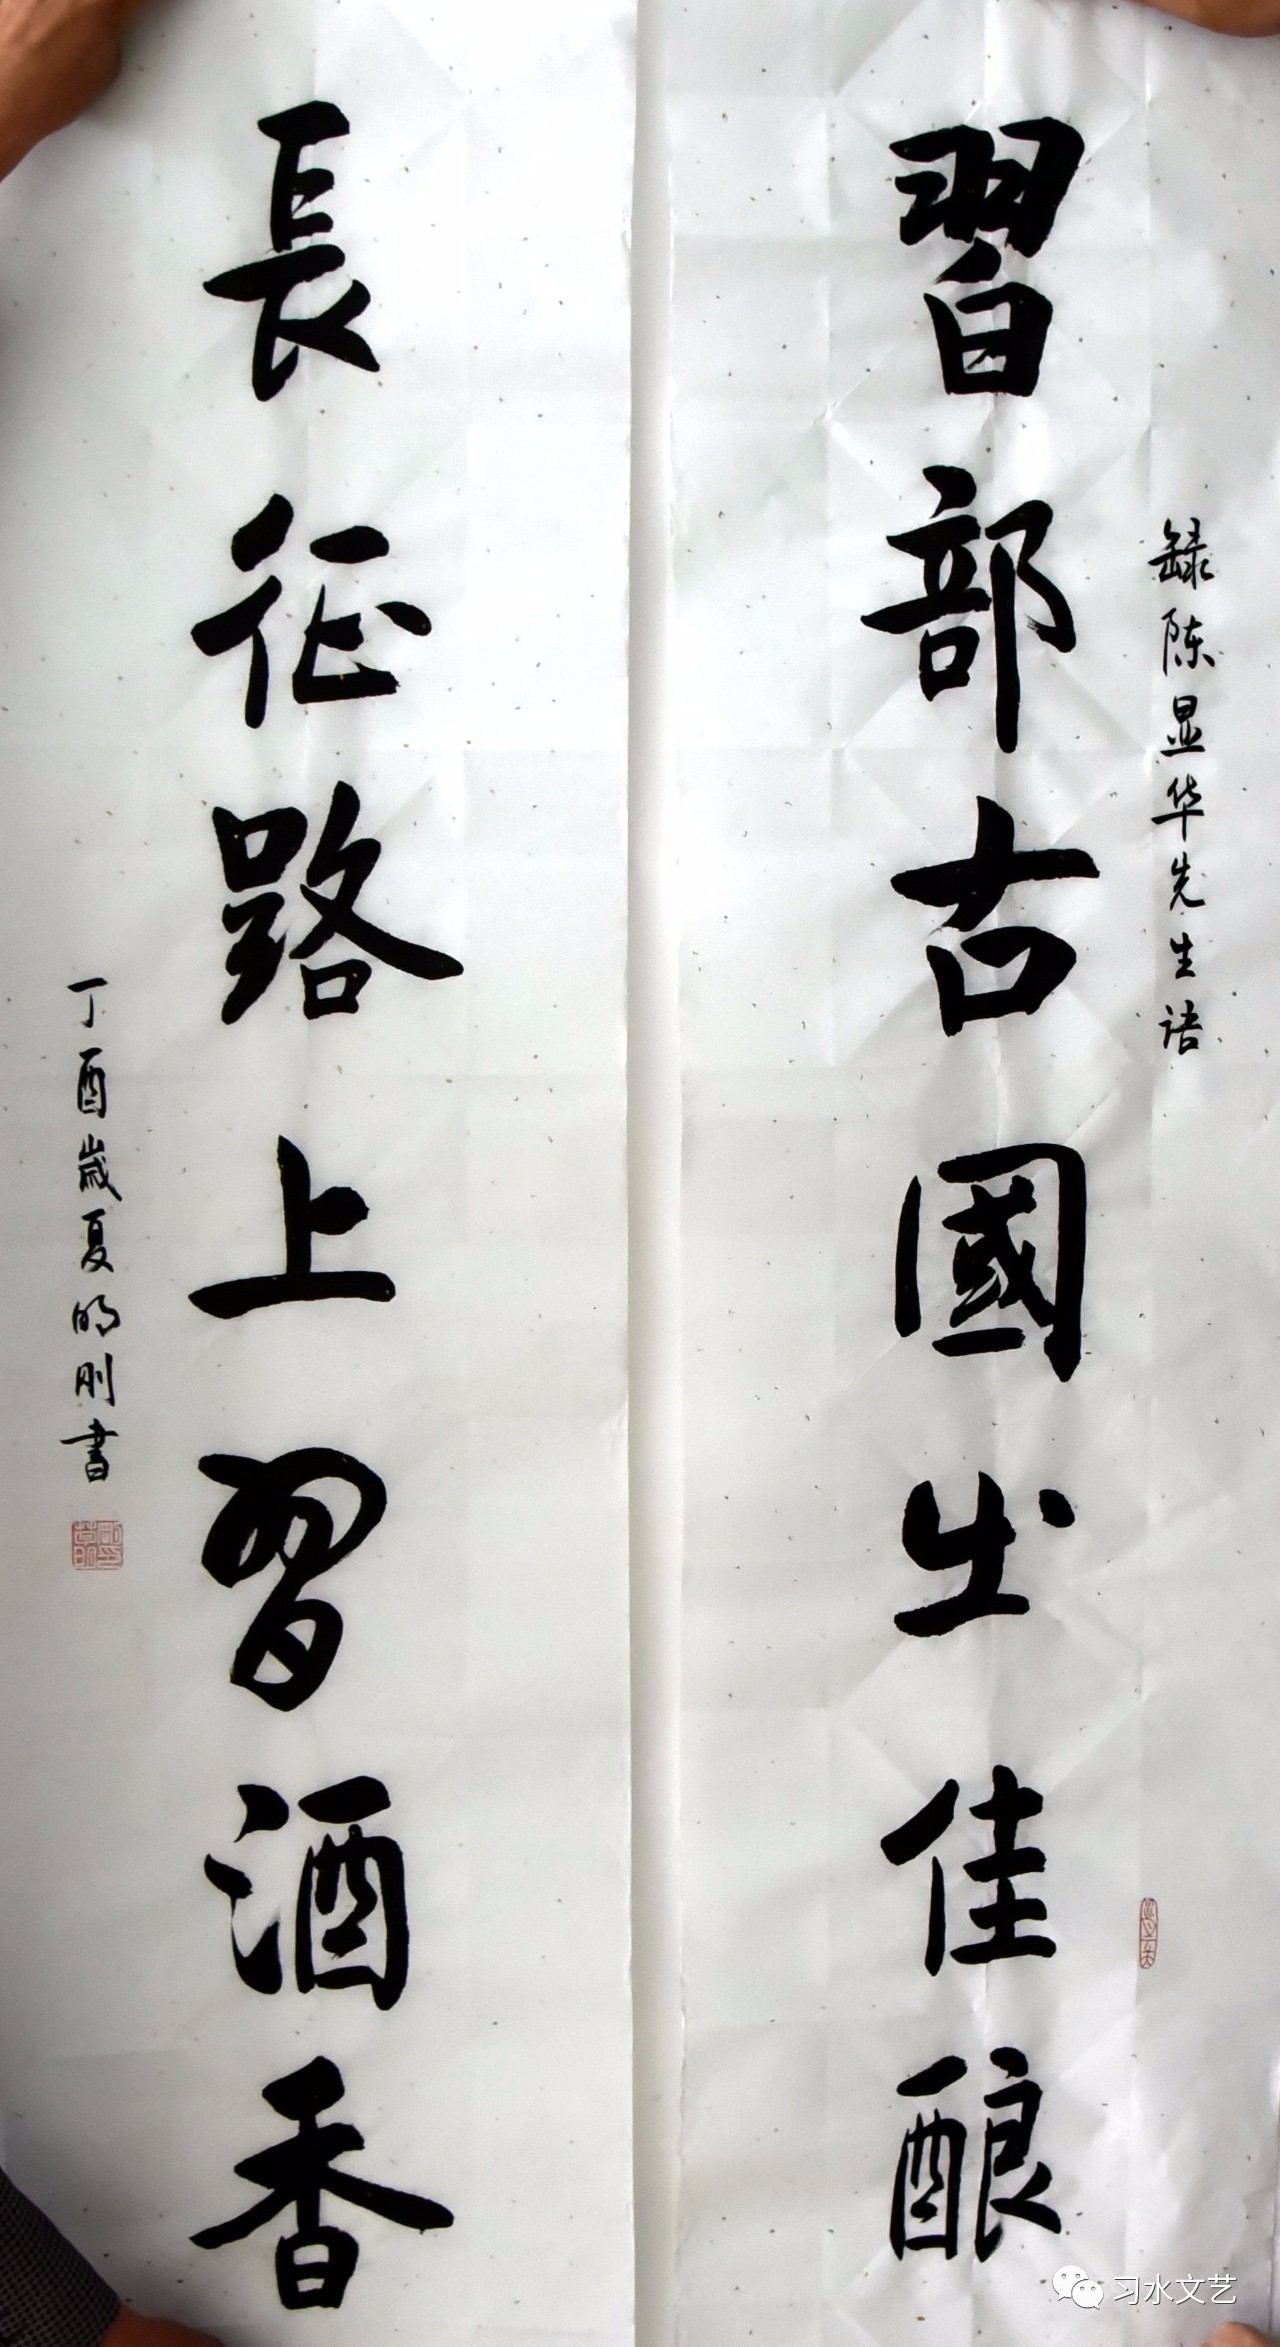 録陈显华先生语
習部古國出佳酿
長征路上習酒香
丁酉歲夏明刚書
习水文艺